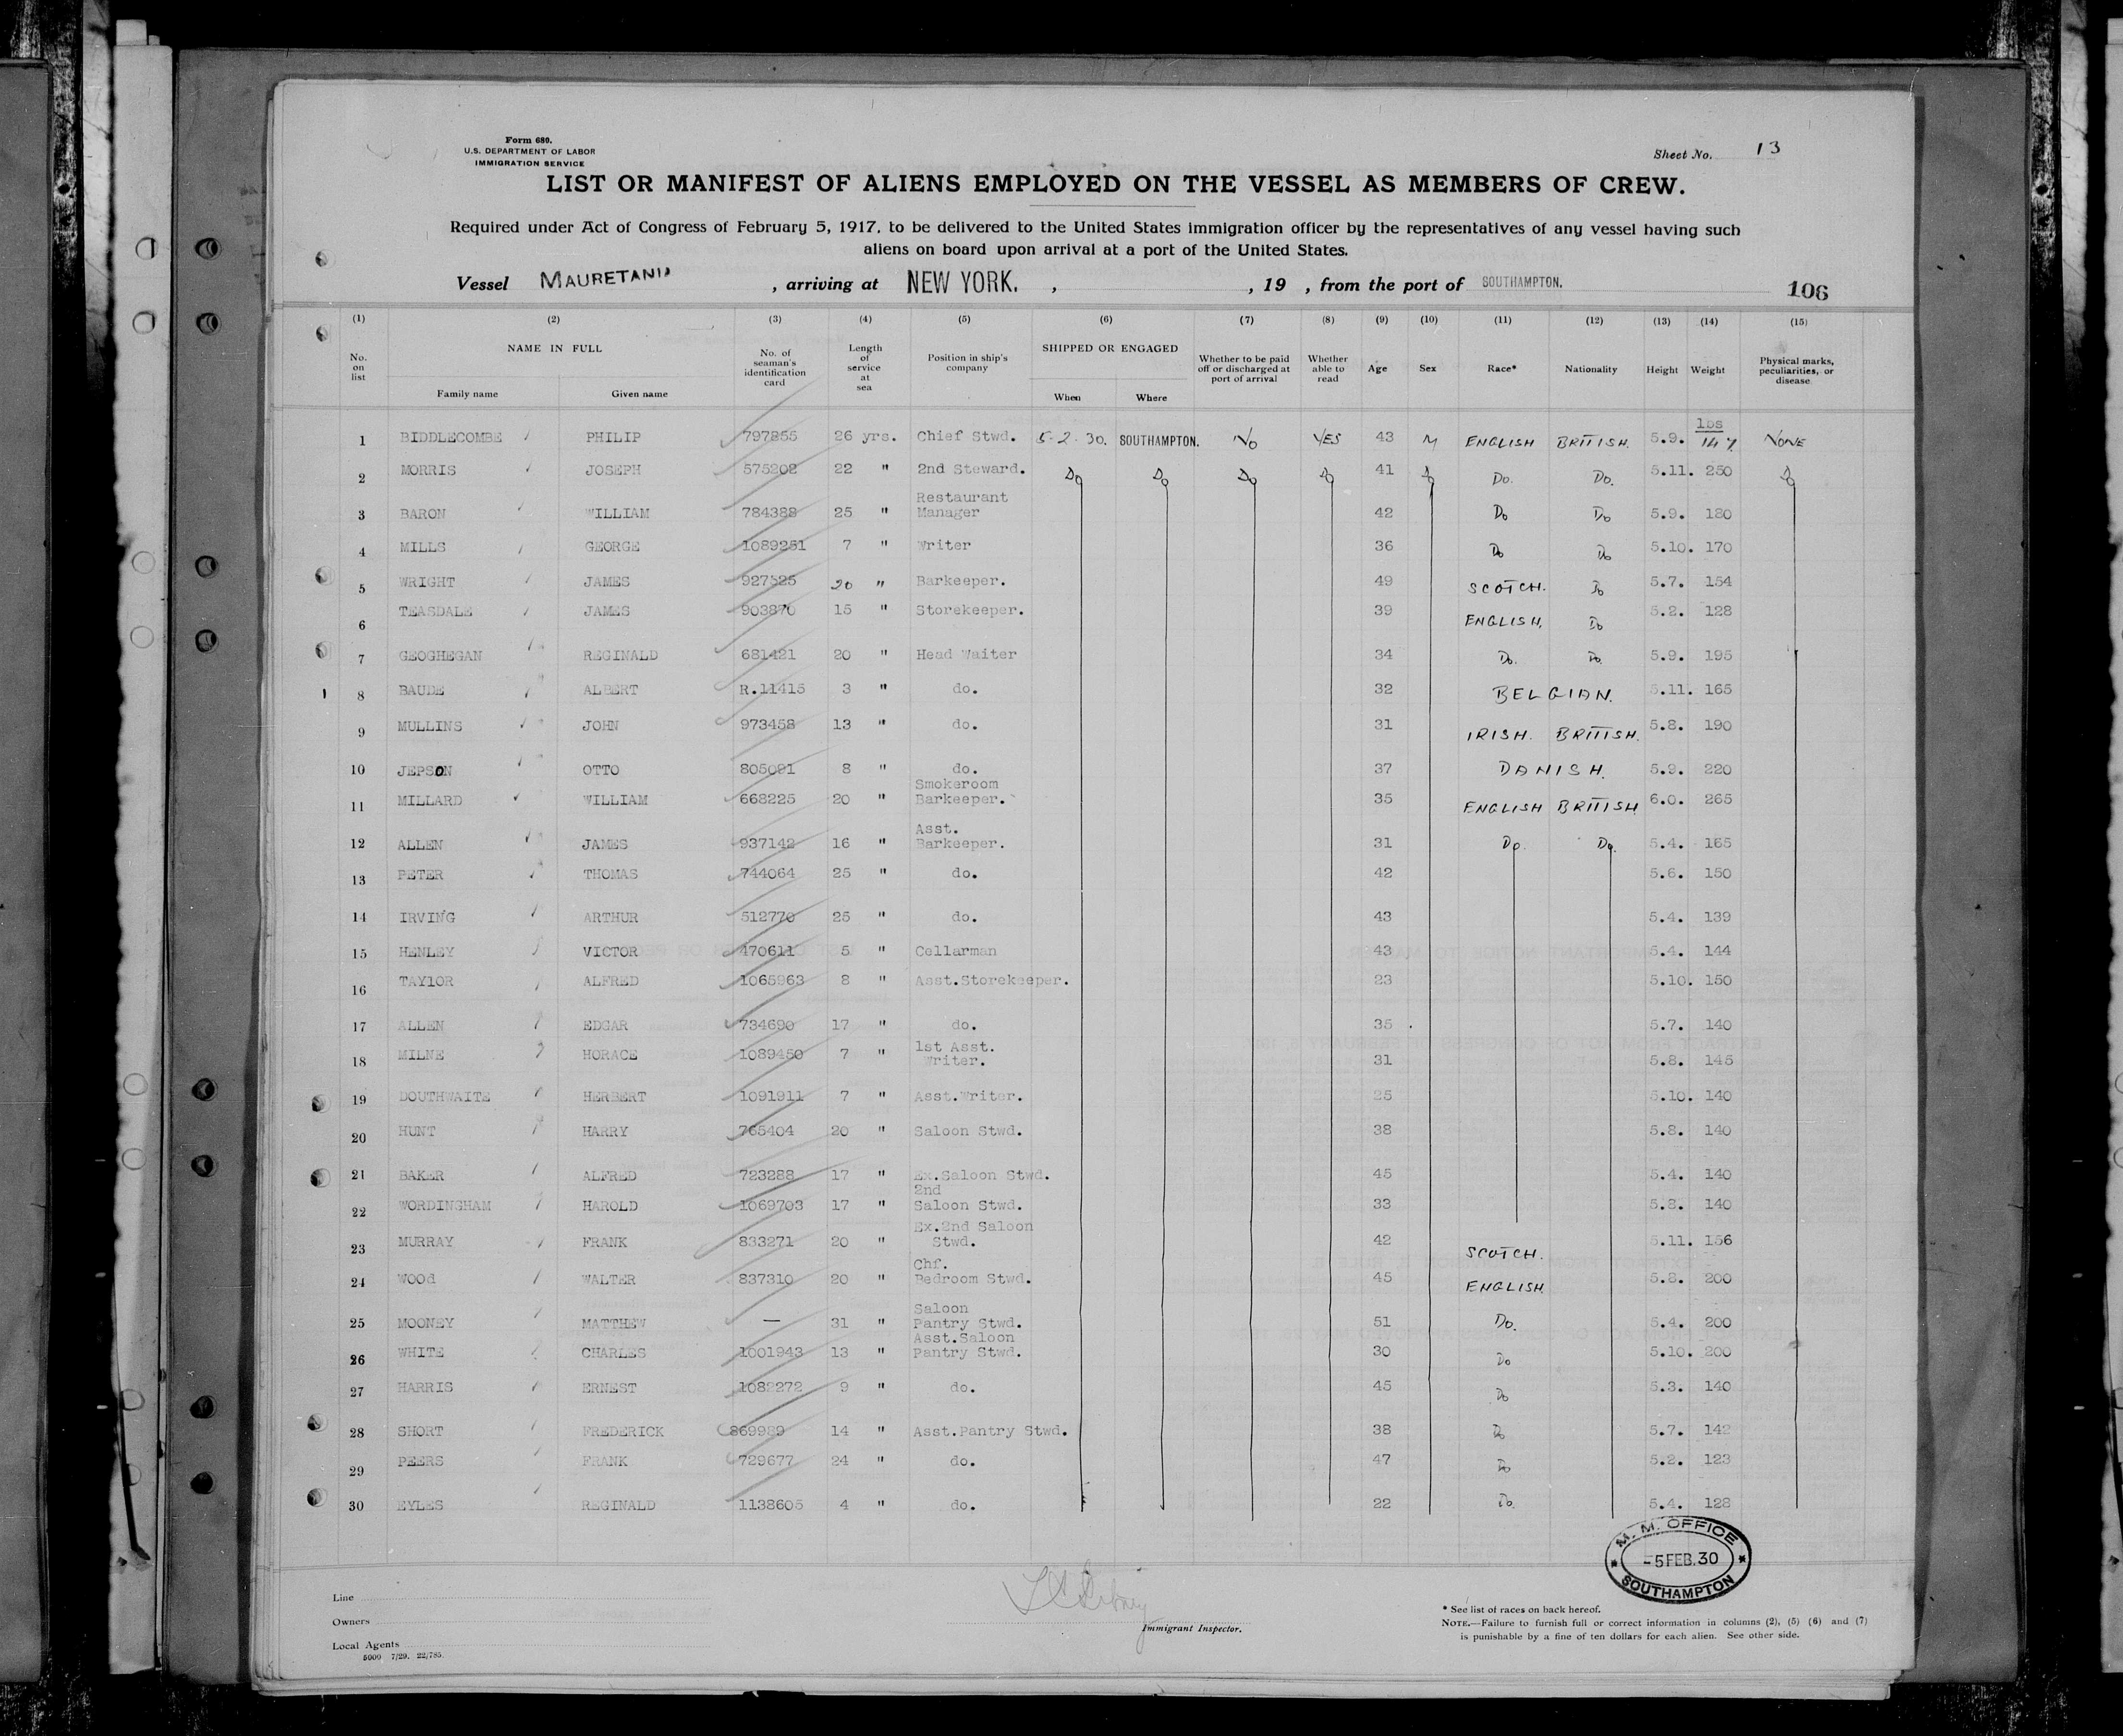 Form 680.
U.S. DEPARTMENT OF LABOR
IMMIGRATION SERVICE
Sheet No. 13
LIST OR MANIFEST OF ALIENS EMPLOYED ON THE VESSEL AS MEMBERS OF CREW.
Required under Act of Congress of February 5, 1917, to be delivered to the United States immigration officer by the representatives of any vessel having such
aliens on board upon arrival at a port of the United States.
Vessel MAURETANIA , arriving at NEW YORK. , , 19 , from the port of SOUTHAMPTON. 106
(1) (2) (3) (4) (5) (6) (7) (8) (9) (10) (11) (12) (13) (14) (15)
No. on list NAME IN FULL Family name Given name No. of seaman's identification card Length of service at sea Position in ship's company SHIPPED OR ENGAGED When Where Whether to be paid off or discharged at port of arrival Whether able to read Age Sex Race* Nationality Height Weight Physical marks, peculiarities, or disease
lbs
1 BIDDLECOMBE PHILIP 797855 26 yrs. Chief Stwd. 5-2-30. SOUTHAMPTON. No YES 43 M ENGLISH BRITISH. 5.9. 147 NONE
2 MORRIS JOSEPH 575208 22 " 2nd Steward. Do Do Do Do 41 Do Do. Do. 5.11. 250 Do
3 BARON WILLIAM 784388 25 " Restaurant Manager 42 Do Do 5.9. 180
4 MILLS GEORGE 1089251 7 " Writer 36 Do Do 5.10. 170
5 WRIGHT JAMES 927525 20 " Barkeeper. 49 SCOTCH. Do 5.7. 154
6 TEASDALE JAMES 903870 15 " Storekeeper. 39 ENGLISH. Do 5.2. 128
7 GEOGHEGAN REGINALD 681421 20 " Head Waiter 34 Do. Do. 5.9. 195
1 8 BAUDE ALBERT R.11415 3 " do. 32 BELGIAN. 5.11. 165
9 MULLINS JOHN 973458 13 " do. 31 IRISH. BRITISH. 5.8. 190
10 JEPSON OTTO 805091 8 " do. 37 DANISH. 5.9. 220
11 MILLARD WILLIAM 668225 20 " Smokeroom Barkeeper. 35 ENGLISH BRITISH 6.0. 265
12 ALLEN JAMES 937142 16 " Asst. Barkeeper. 31 Do. Do. 5.4. 165
13 PETER THOMAS 744064 25 " do. 42 5.6. 150
14 IRVING ARTHUR 512770 25 " do. 43 5.4. 139
15 HENLEY VICTOR 470611 5 " Cellarman 43 5.4. 144
16 TAYlOR ALFRED 1065963 8 " Asst.Storekeeper. 23 5.10. 150
17 ALLEN EDGAR 734690 17 " do. 35 5.7. 140
18 MILNE HORACE 1089450 7 " 1st Asst. Writer. 31 5.8. 145
19 DOUTHWAITE HERBERT 1091911 7 " Asst.Writer. 25 5.10. 140
20 HUNT HARRY 765404 20 " Saloon Stwd. 38 5.8. 140
21 BAKER ALFRED 723288 17 " Ex.Saloon Stwd. 45 5.4. 140
22 WORDINGHAM HAROLD 1069703 17 " 2nd Saloon Stwd. 33 5.8. 140
23 MURRAY FRANK 833271 20 " Ex.2nd Saloon Stwd. 42 SCOTCH. 5.11. 156
24 WOOd WALTER 837310 20 " Chf. Bedroom Stwd. 45 ENGLISH. 5.8. 200
25 MOONEY MATTHEW — 31 " Saloon Pantry Stwd. 51 Do. 5.4. 200
26 WHITE CHARLES 1001943 13 " Asst.Saloon Pantry Stwd. 30 Do 5.10. 200
27 HARRIS ERNEST 1082272 9 " do. 45 Do 5.3. 140
28 SHORT FREDERICK 869989 14 " Asst.Pantry Stwd. 38 Do 5.7. 142
29 PEERS FRANK 729677 24 " do. 47 Do 5.2. 123
30 EYLES REGINALD 1138605 4 " do. 22 Do. 5.4. 128
M. M. OFFICE
-5 FEB. 30
SOUTHAMPTON
Line
Owners
Local Agents
5000 7/29. 22/785.
Immigrant Inspector.
* See list of races on back hereof.
NOTE.—Failure to furnish full or correct information in columns (2), (5) (6) and (7)
is punishable by a fine of ten dollars for each alien. See other side.